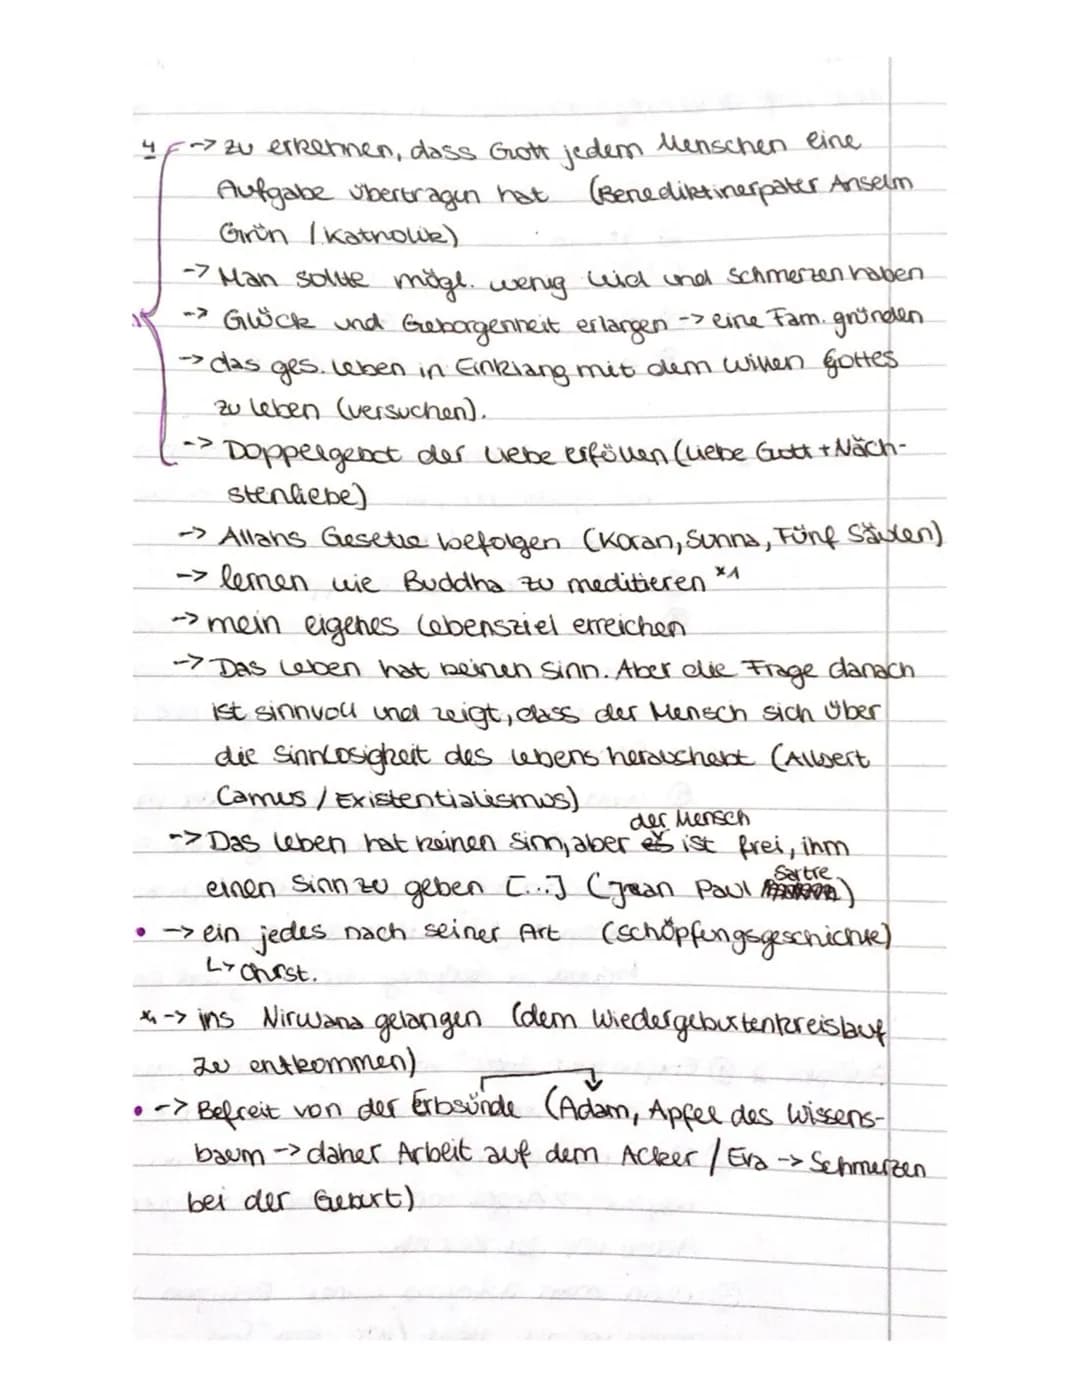 4 -> zu erkennen, dass Gott jedem Menschen eine
Aufgabe übertragen hat (Benediktinerpater Anselm
Grün / Katholik)
-> Man sollte mögl. wenig Leid und Schmerzen haben
-> Glück und Geborgenheit erlangen -> eine Fam. gründen
-> das ges. Leben in Einklang mit dem Willen Gottes
zu leben (versuchen).
-> Doppelgebot der Liebe erfüllen (Liebe Gott + Näch-
stenliebe)
-> Allahs Gesetze befolgen (Koran, Sunna, Fünf Säulen)
-> lernen wie Buddha zu meditieren *1
-> mein eigenes Lebensziel erreichen
-> Das Leben hat keinen Sinn. Aber die Frage danach
ist sinnvoll und zeigt, dass der Mensch sich über
die Sinnlosigkeit des Lebens heraushebt (Albert
Camus / Existentialismus)
der Mensch
-> Das Leben hat keinen Sinn, aber es ist frei, ihm
einen Sinn zu geben [...] (Jean Paul Sartre)
• -> ein jedes nach seiner Art (Schöpfungsgeschichte)
↳ Christ.
*1 -> ins Nirwana gelangen (dem Wiedergeburtenkreislauf
zu entkommen)
• -> Befreit von der Erbsünde (Adam, Apfel des Wissens-
baum -> daher Arbeit auf dem Acker / Eva -> Schmerzen
bei der Geburt)